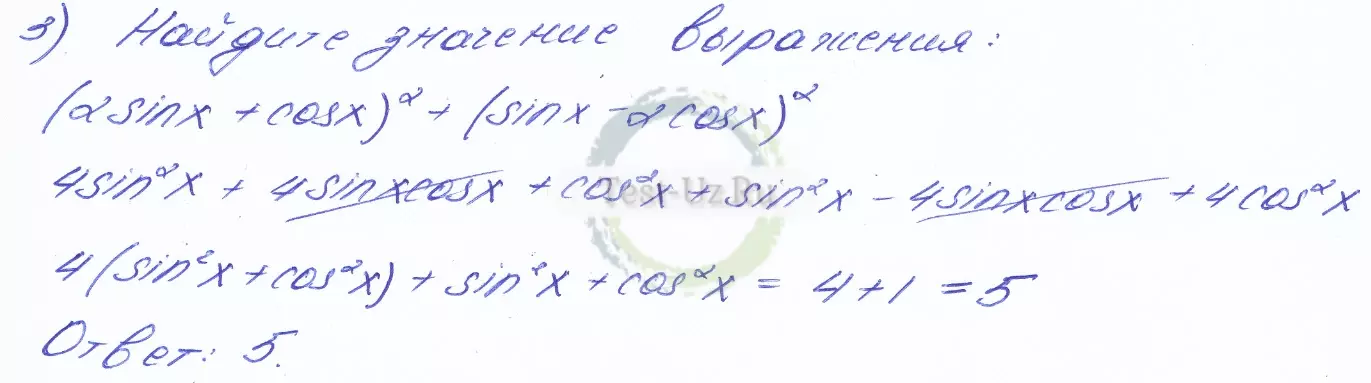 3) Найдите значение выражения:
(2sinx + cosx)² + (sinx - 2cosx)²
4sin²x + 4sinxcosx + cos²x + sin²x - 4sinxcosx + 4cos²x
Test-Uz.Ru
4(sin²x + cos²x) + sin²x + cos²x = 4 + 1 = 5
Ответ: 5.